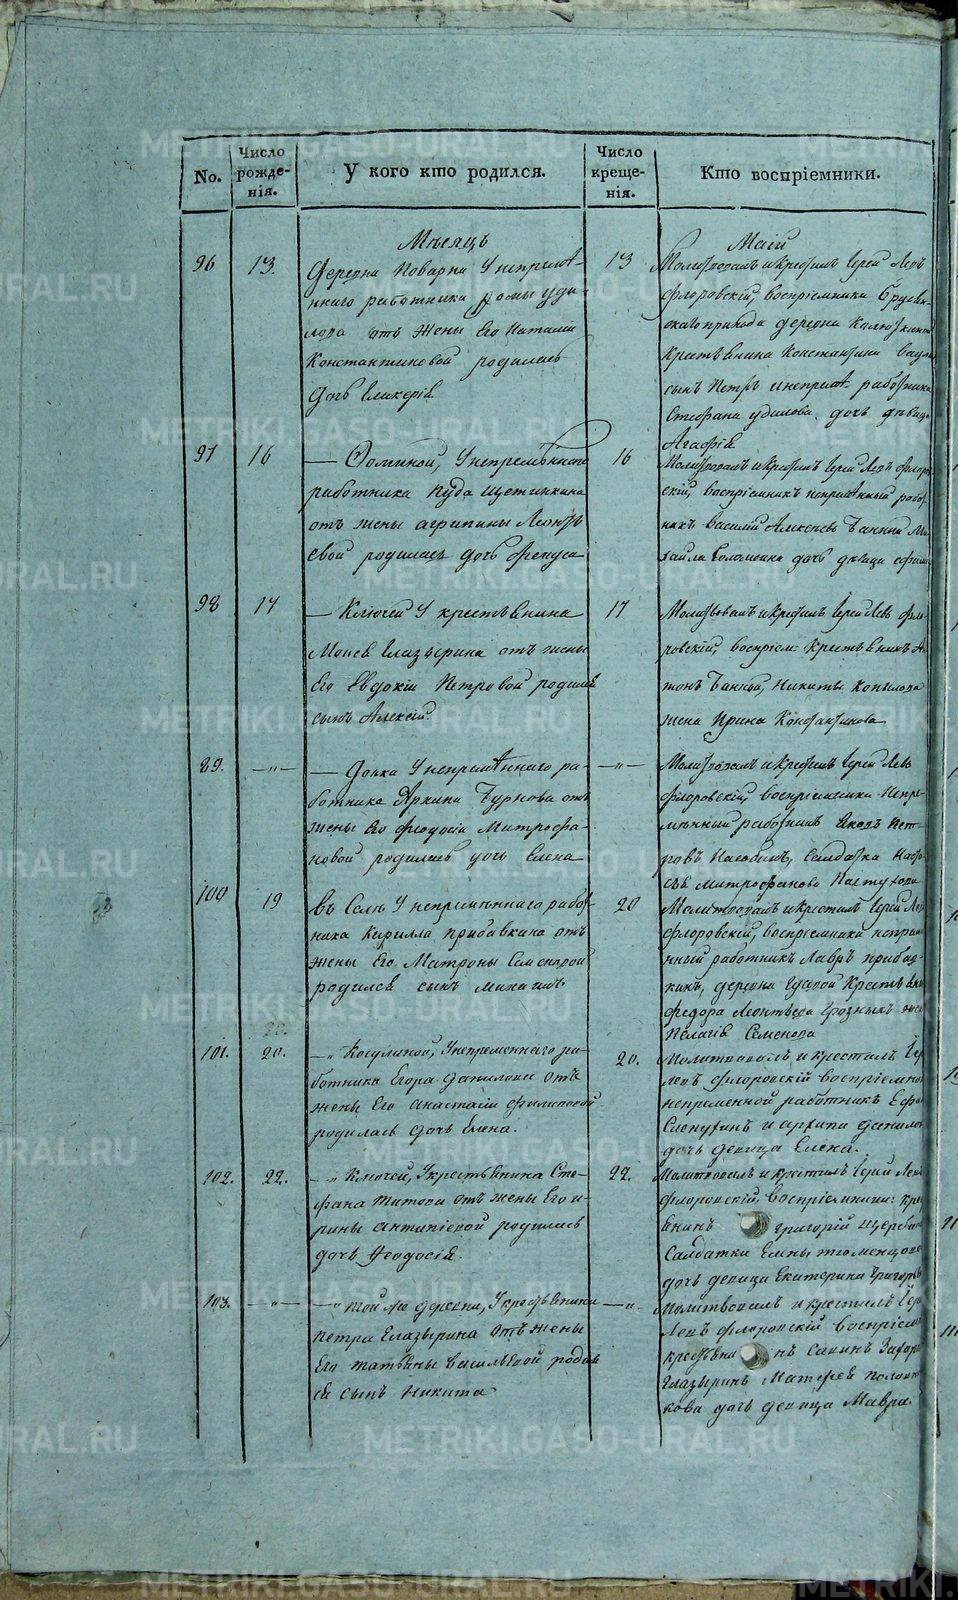 No.
Число рожде-нія.
У кого кто родился.
Число креще-нія.
Кто воспріемники.
Мѣсяцъ
Маій
96
13.
Деревни Поварни У непремѣ-
ннаго работника Ѳомы Уди-
лова отъ жены Его Наталіи
Константиновой родилась
дочь Гликерія
13
Молитвовалъ и крестилъ Іерей Левъ
Флоровскій, воспріемники
прихода деревни
Крестьянина Константина
сынъ Петръ и непремѣ. работника
Стефана Удилова дочь дѣвица
Агафія
97
16
— Фоминой, У непремѣннаго
работника Иуда Щетинкина
отъ жены Агрипины Леонть-
евой родилась дочь Фекуса
16
Молитвовалъ и крестилъ Іерей Левъ Флоров-
скій, воспріемникъ непремѣнный рабо-
никъ Василій Алексѣевъ
дочь дѣвица
98
17
— Ключей У крестьянина
Моисея Глазырина отъ жены
Его Евдокіи Петровой родился
сынъ Алексій.
17
Молитвовалъ и крестилъ Іерей Левъ Фло-
ровскій, воспріем: Крестьянинъ Ан-
тонъ Банной, Никиты Копылова
жена Ирина Константинова
89.
—"—
— Токка У непремѣннаго ра-
ботника Аркипа Бурнова отъ
жены Его Феодосіи Митрофа-
новой родилась дочь Елена
—"—
Молитвовалъ и крестилъ Іерей Левъ
Флоровскій, воспріемники Непре-
мѣнный работникъ Яковъ Пет-
ровъ Солдатка Наста-
сья Митрофанова Пастухова
100
19
въ Селѣ У непремѣннаго рабо-
ника Кирилла Прибавкина отъ
жены Его Матроны Семеновой
родился сынъ Михаилъ
20
Молитвовалъ и крестилъ Іерей Левъ
Флоровскій, воспріемники непремѣ-
нный работникъ Лавръ Прибав-
кинъ, деревни Гусевой Крестьянина
Федора Леонтьева Грозныхъ жена
Пелагія Семенова
101.
20.
—" Косулиной, У непременнаго ра-
ботника Егора Данилова отъ
жены Его Анастасіи Филиповой
родилась дочь Елена.
20.
Молитвовалъ и крестилъ Іер
Левъ Флоровскій воспріемники
непременной работникъ Ефи
Слепухинъ и Архипа Данилова
дочь девица Елена.
102.
22.
—" Ключей, У крестьянина Сте-
фана Титова отъ жены Его И-
рины Антипіевой родилась
дочь Феодосія.
22.
Молитвовалъ и крестилъ Іерей Левъ
Флоровскій, воспріемники: кре
янинъ Григорій Щерба
Салдатки Елены Тюменцовой
дочь девица Екатерина Григорь
103.
—"—
—" той же деревни, У крестьянина
Петра Глазырина отъ жены
Его Татьяны Васильевой родил-
ся сынъ Никита
—"—
Молитвовалъ и крестилъ Іер
Левъ Флоровскій воспріем
крестьянинъ Савинъ Захаро
Глазыринъ Матфея Полов
кова дочь девица Мавра.